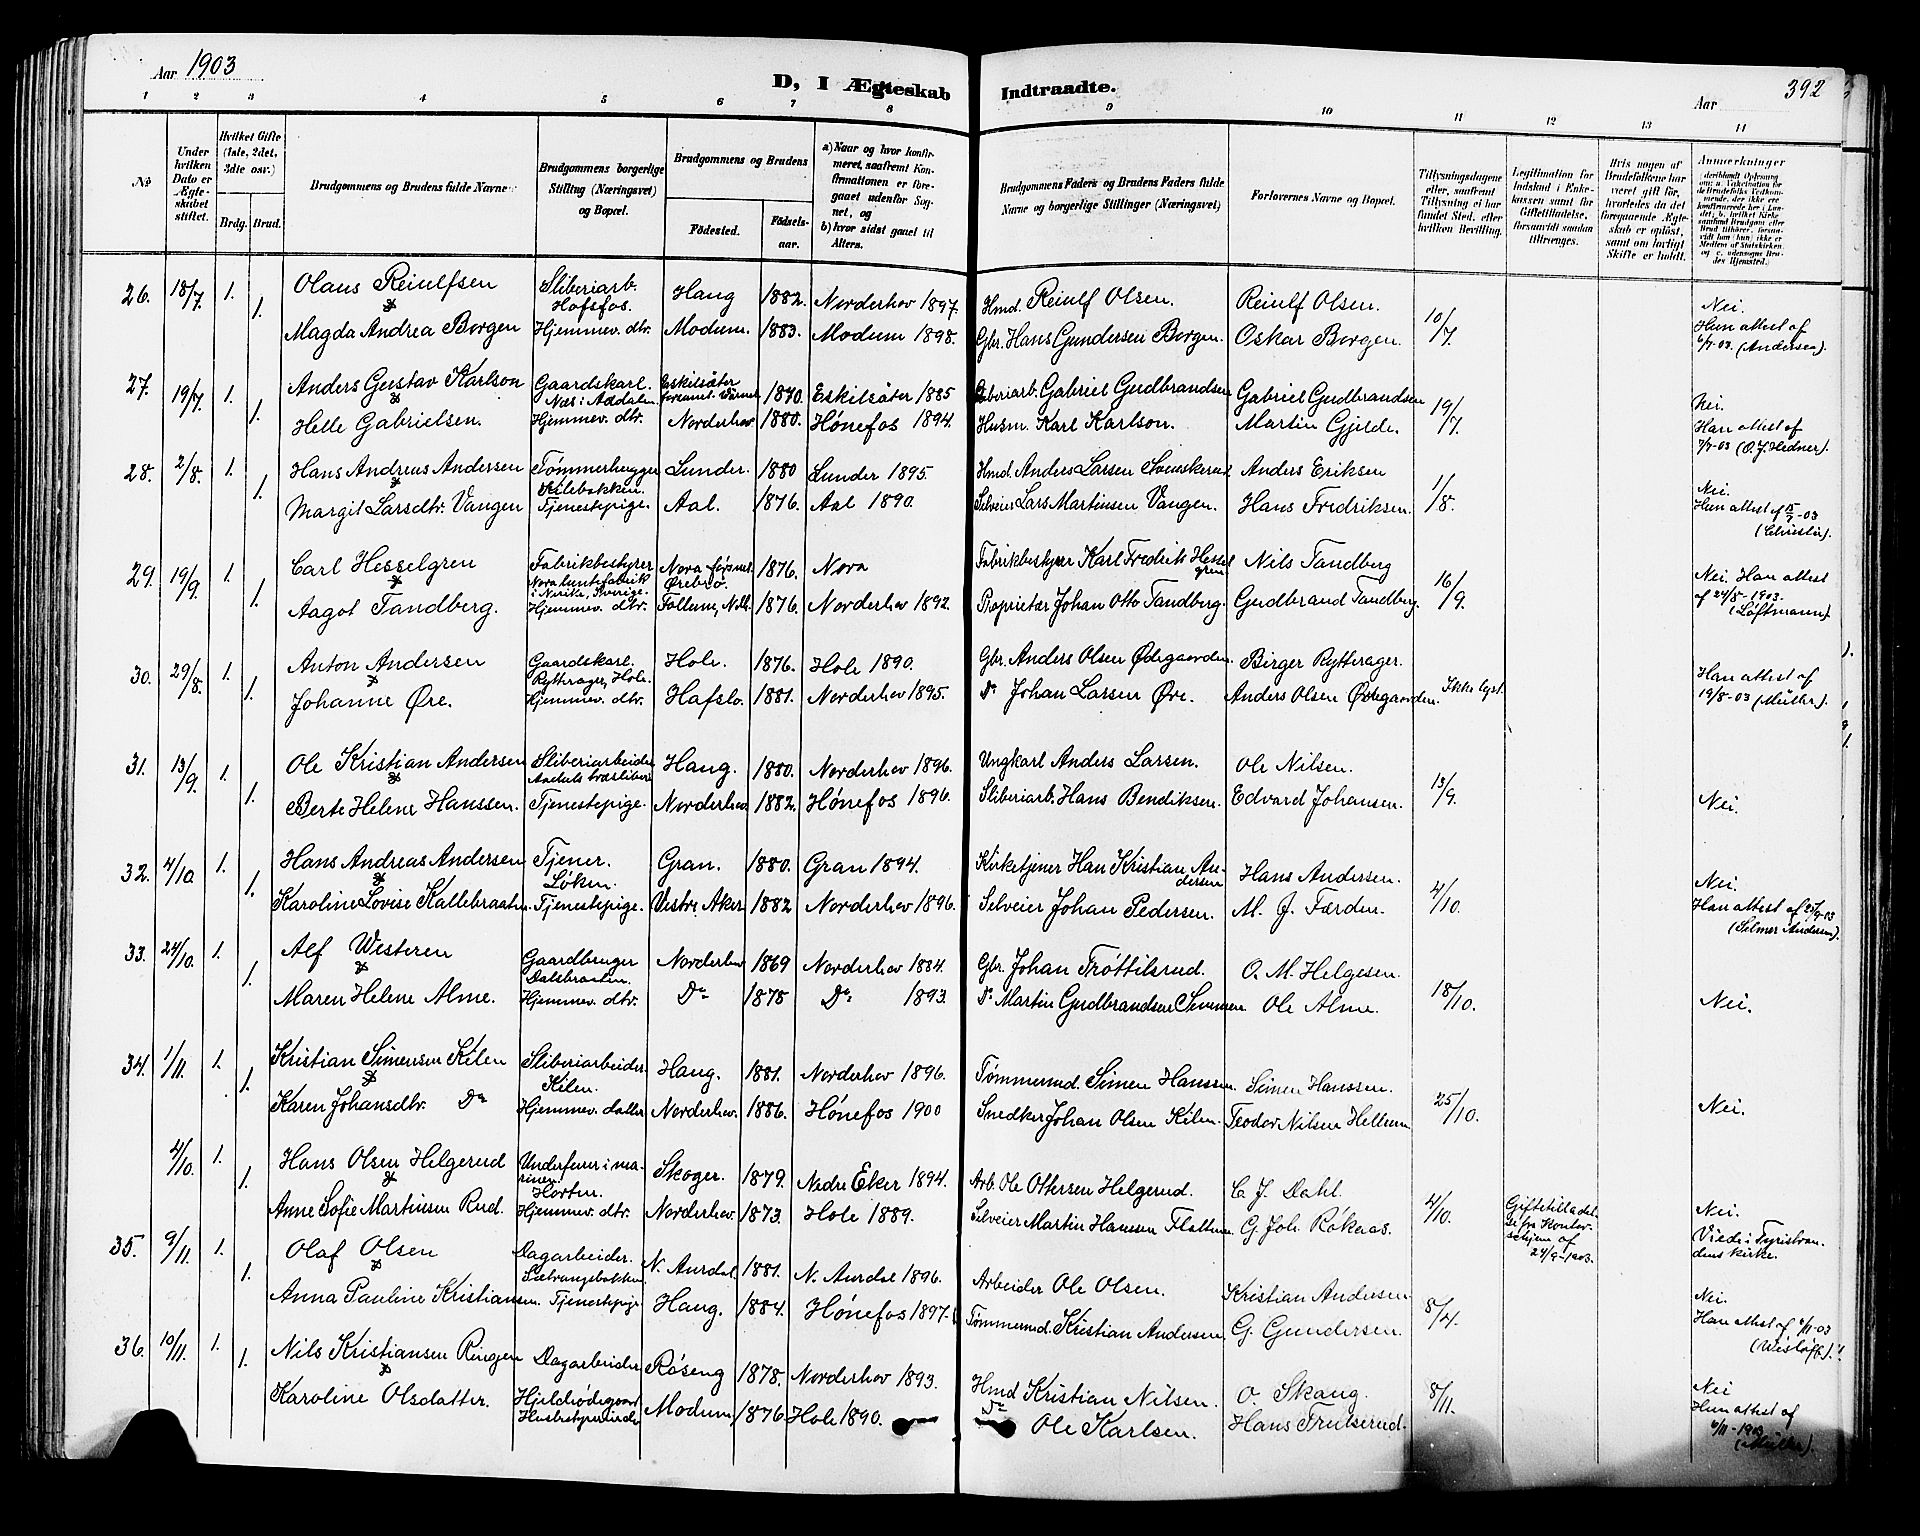 Aar 1903
D, I Ægteskab Indtraadte.
Aar 392
1 2 3 4 5 6 7 8 9 10 11 12 13 14
No
Under hvilken Dato er Ægteskabet stiftet.
Hvilket Gifte (1ste, 2det, 3die osv.)
Brdg. Brud.
Brudgommens og Brudens fulde Navne
Brudgommens borgerlige Stilling (Næringsvei) og Bopæl.
Brudgommens og Brudens
Fødested. Fødselsaar.
a) Naar og hvor konfirmeret, saafremt Konfirmationen er foregaaet udenfor Sognet, og
b) hvor sidst gaaet til Alters.
Brudgommens Faders og Brudens Faders fulde Navne og borgerlige Stillinger (Næringsvei)
Forlovernes Navne og Bopæl.
Tillysningsdagene eller, saafremt Tillysning ei har fundet Sted, efter hvilken Bevilling.
Legitimation for Indskud i Enkekassen samt for Giftetilladelse, forsaavidt saadan tiltrænges.
Hvis nogen af Brudefolkene har været gift før, hvorledes da det foregaaende Ægteskab er opløst, samt om lovligt Skifte er holdt.
Anmerkninger
26. 18/7 1. Olaus Reiulfsen Sliberiarb. Hofsfos. Haug 1882. Norderhov 1897. Hmd. Reiulf Olsen. Reiulf Olsen. 10/7 Nei.
1. Magda Andrea Borgen Hjemmev. dtr. Modum. 1883. Modum 1898. Gbr. Hans Gundersen Borgen. Oskar Borgen. Hun attest af 6/7-03. (Andersen)
27. 19/7 1. Anders Gustav Karlson Gaardskarl. Næs i Aadalen Eskilsäter 1870. Eskilsäter 1885 Sliberiarb. Gabriel Gudbrandsen Gabriel Gudbrandsen 19/7. Nei.
1. Helle Gabrielsen. Hjemmev. dtr. Norderhov 1880. Hønefos 1894. Husm. Karl Karlson. Martin Gjelde. Han attest af 7/7-03 (O. J. Hedner).
28. 2/8. 1. Hans Andreas Andersen Tømmerhugger Lunder. 1880 Lunder 1895. Hmd. Anders Larsen Anders Eriksen 1/8. Nei.
1. Margit Larsdtr. Vangen Tjenestepige. Aal. 1876. Aal 1890. Selveier Lars Martinsen Vangen. Hans Fredriksen. Hun attest af 15/7-03
29. 19/9. 1. Carl Hesselgren Fabrikbestyrer Nora i Nerike, Sverige. Nora Ørebro. 1876. Nora Fabrikbestyrer Karl Fredrik Hesselgren Nils Tandberg 16/9. Nei. Han attest af 24/8-1903. (Løftmann)
1. Aagot Tandberg. Hjemmev. dtr. Follum, Ndh. 1876. Norderhov 1892. Proprietær Johan Otto Tandberg. Gudbrand Tandberg.
30. 29/8. 1. Anton Andersen Gaardskarl. Rytterager, Hole. Hole. 1876. Hole 1890. Gbr. Anders Olsen Ødegaarden. Birger Rytterager. Ikke lyst. Han attest af 19/8-03
1. Johanne Øre. Hjemmev. dtr. Hafslo. 1881. Norderhov 1895. Do Johan Larsen Øre. Anders Olsen Ødegaarden.
31. 13/9 1. Ole Kristian Andersen Sliberiarbeider Haug. 1880. Norderhov 1896. Ungkarl Anders Larsen. Ole Nilsen. 13/9. Nei.
1. Berte Helene Hanssen. Tjenestepige. Norderhov. 1882. Hønefos 1896. Sliberiarb. Hans Bendiksen. Edvard Johansen.
32. 4/10. 1. Hans Andreas Andersen Tjener. Løken. Gran. 1880. Gran 1894. Kirketjener Han Kristian Andersen Hans Andersen. 4/10. Nei.
1. Karoline Lovise Kallebraaten Tjenestepige. Vestre Aker 1882 Norderhov 1896. Selveier Johan Pedersen. M. J. Færden. Han attest af 25/9-03 (Selmer Andersen).
33. 24/10. 1. Alf Westeren Gaardbruger Dalsbraaten. Norderhov 1869 Norderhov 1884. Gbr. Johan Trøttilsrud. O. M. Helgesen 18/10. Nei.
1. Maren Helene Alme. Hjemmev. dtr. Do 1878 Do 1893. Do Martin Gudbrandsen Semmen Ole Alme.
34. 1/11. 1. Kristian Simensen Kilen Sliberiarbeider Kilen. Haug. 1881. Norderhov 1896. Tømmermd. Simen Hanssen. Simen Hanssen. 25/10. Nei.
1. Karen Johansdtr. Do Hjemmev. datter Norderhov. 1886. Hønefos 1900 Snedker Johan Olsen Kilen. Teodor Nilsen Hellum
4/10. 1. Hans Olsen Helgerud Underfeurer i marinen. Horten. Skoger. 1879. Nedre Eker 1894. Arb. Ole Ottersen Helgerud. C. J. Dahl. 4/10. Giftetilladelse fra Kontorchefene af 24/9-1903. Nei.
1. Anne Sofie Martinsen Rud. Hjemmev. dtr. Norderhov. 1873. Hole 1889. Selveier Martin Hansen Flattum G. Joh. Røkeaas. Viede i Tyristrandens kirke.
35. 9/11. 1. Olaf Olsen Dagarbeider. N. Aurdal. 1881. N. Aurdal 1896. Arbeider Ole Olsen. Kristian Andersen 8/4. Nei.
1. Anna Pauline Kristiansen. Tjenestepige Haug. 1884. Hønefos 1897. Tømmermd. Kristian Andersen. G. Gundersen. Han attest af 4/11-03 (Wisløff).
36. 10/11. 1. Nils Kristiansen Ringen Dagarbeider Røseng 1878. Norderhov 1893. Hmd Kristian Nilsen. O. Skaug. 8/11. Nei
1. Karoline Olsdatter. Husbestyrerinde Modum, 1876 Hole 1890. Do Ole Karlsen. Hans Trulserud. Hun attest af 6/11-1903